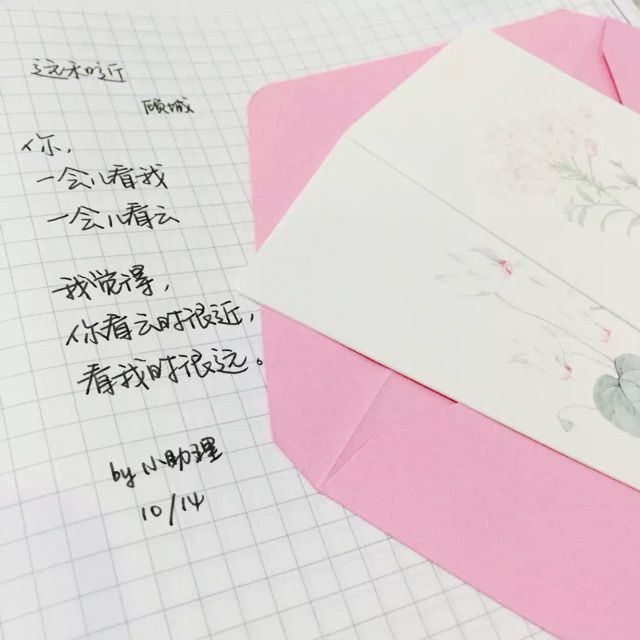 远和近
顾城
你,
一会儿看我
一会儿看云
我觉得,
你看云时很近,
看我时很远。
by 小助理
10/14